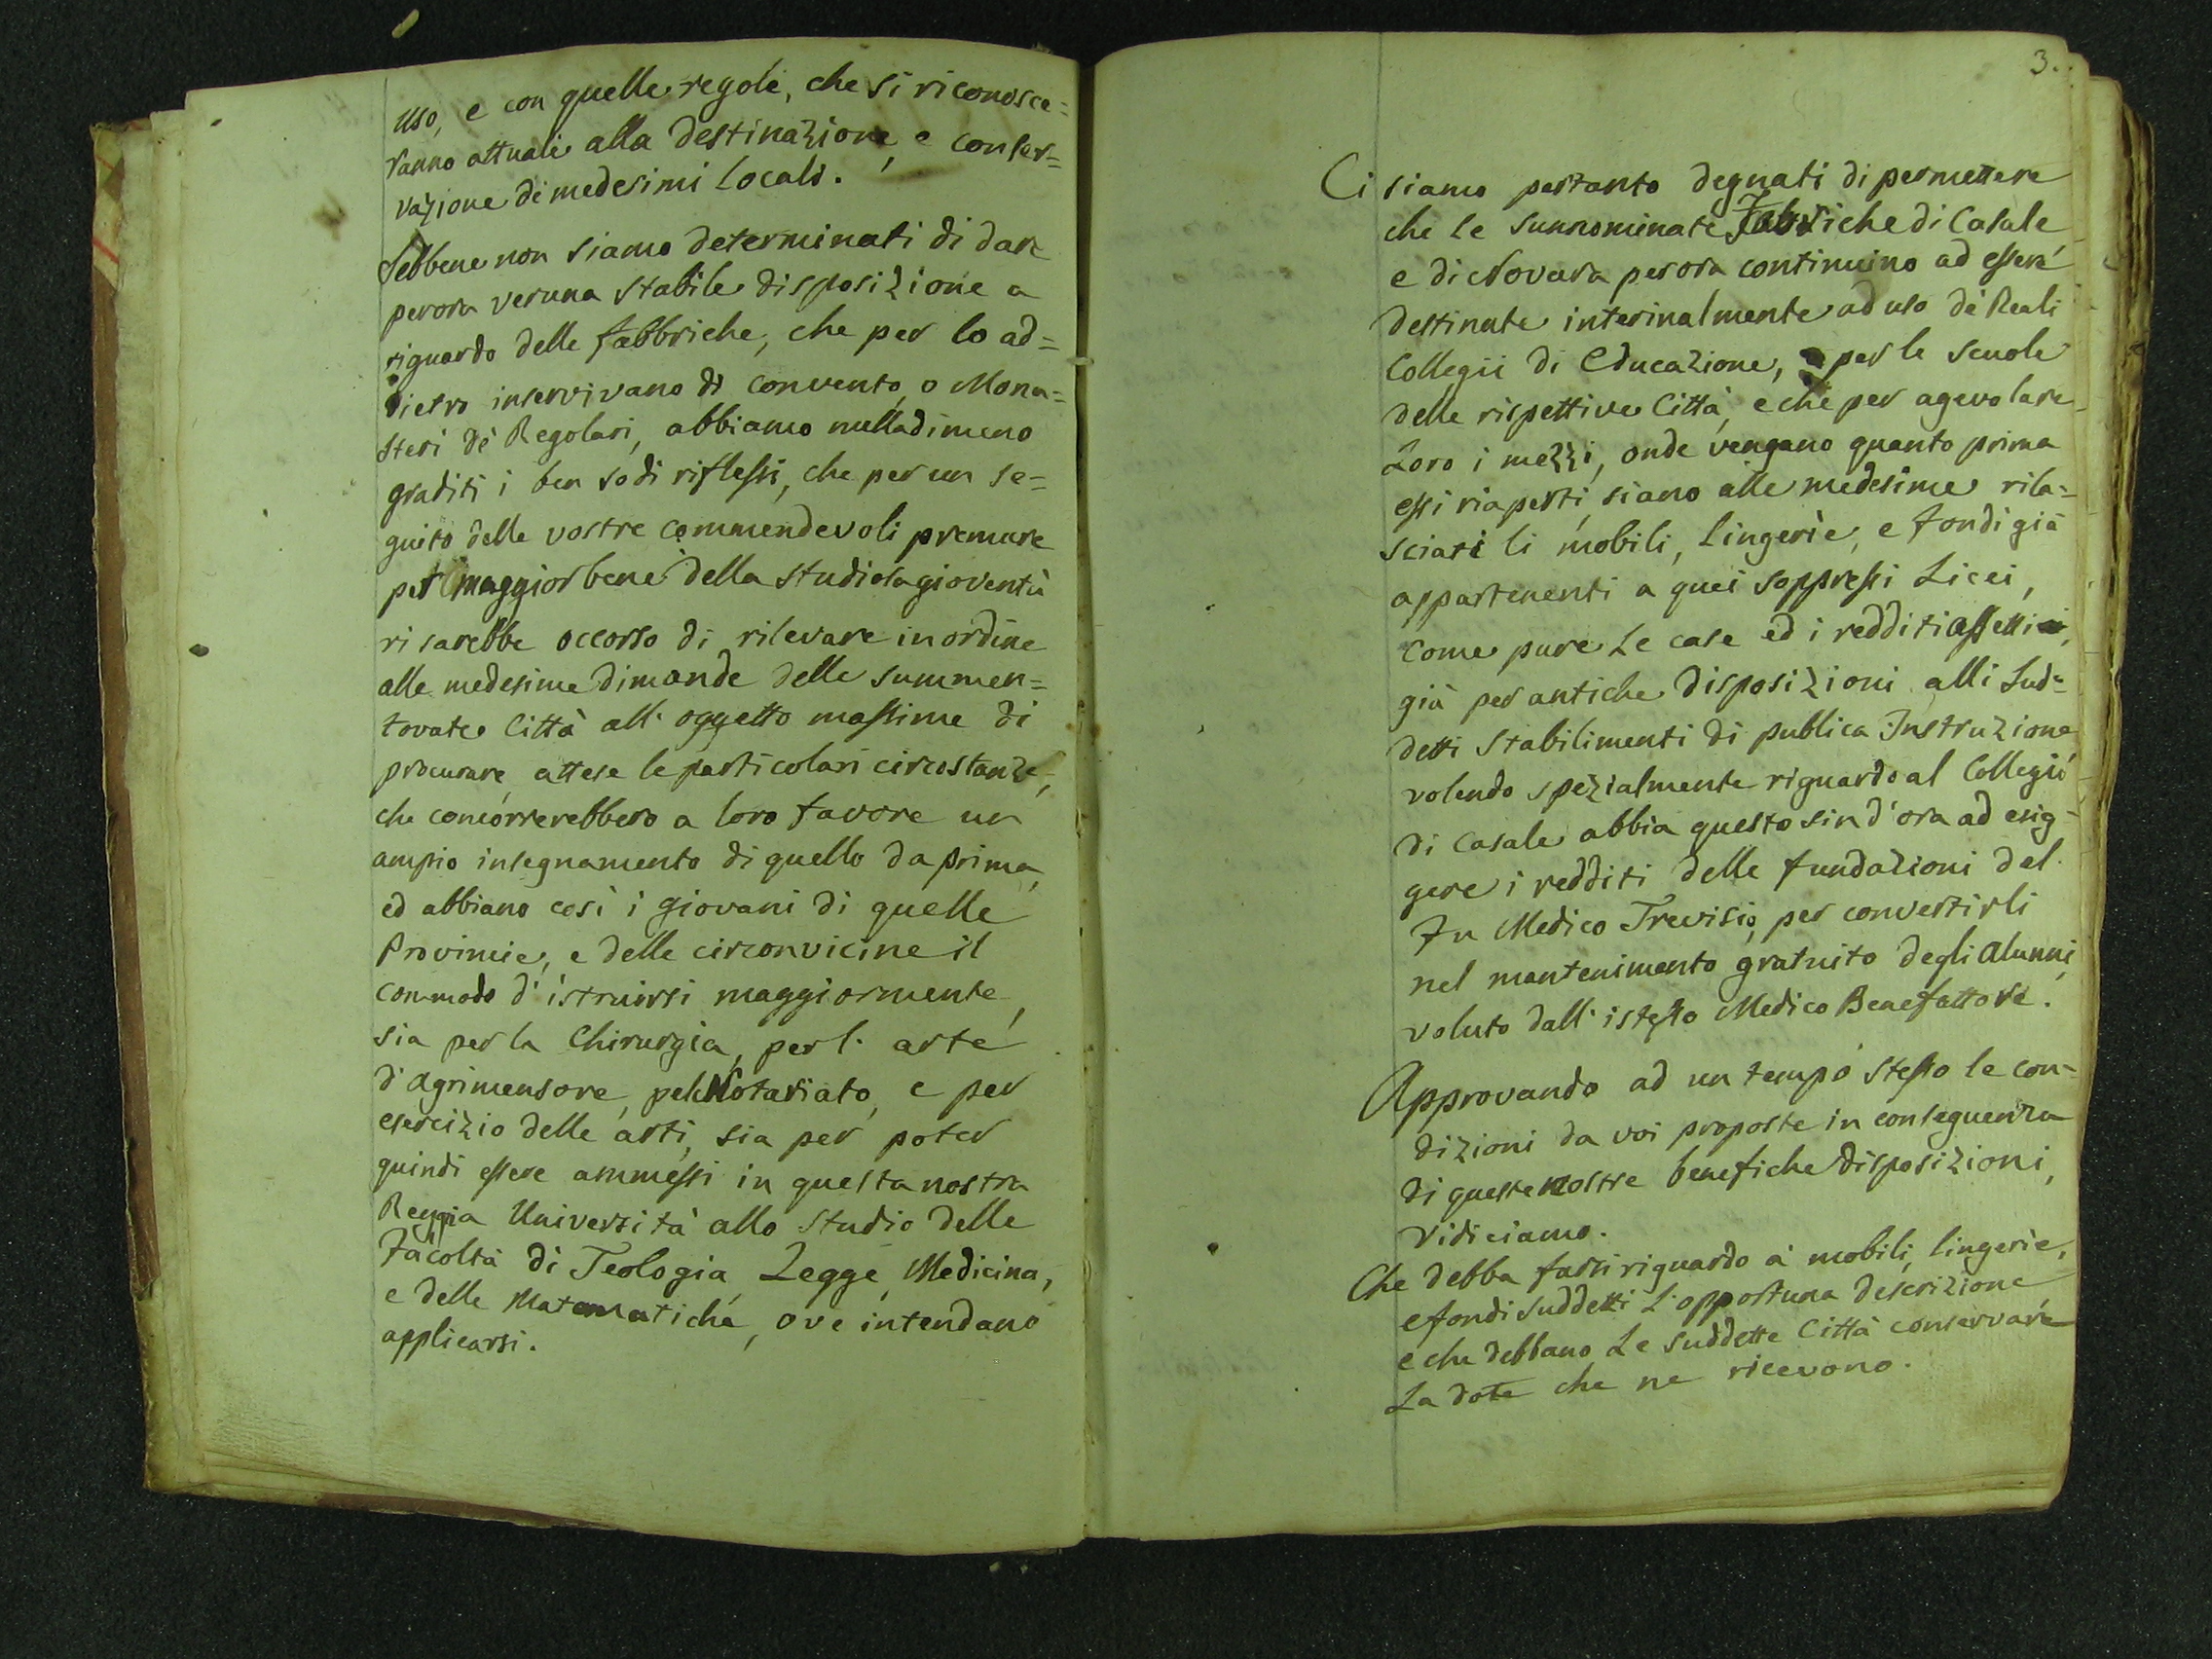 uso, e con quelle regole, che si riconosce=
ranno attuali alla destinazione, e conser=
vazione de medesimi locali.
Sebbene non siamo determinati di dare
perora veruna stabile disposizione a
riguardo delle fabbriche, che per lo ad=
dietro inservivano di convento, o Mona=
steri de' Regolari, abbiamo nulladimeno
graditi i ben sodi riflessi, che per un se=
guito delle vostre commendevoli premure
pel maggior bene della studiosa gioventù
vi sarebbe occorso di rilevare in ordine
alle medesime dimande delle summen=
tovate Città all' oggetto massime di
procurare, attese le particolari circostanze,
che concorrerebbero a loro favore un
ampio insegnamento di quello da prima,
ed abbiano così i giovani di quelle
Provincie, e delle circonvicine il
commodo d' istruirsi maggiormente,
sia per la Chirurgia, per l' arte
d' agrimensore, pel Notariato, e per
esercizio delle arti, sia per poter
quindi essere ammessi in questa nostra
Reggia Università allo studio delle
Facoltà di Teologia, Legge, Medicina,
e delle Matematiche, ove intendano
applicarsi.
3.
Ci siamo pertanto degnati di permettere
che le sunnominate Fabriche di Casale
e di Novara perora continuino ad essere
destinate interinalmente ad uso de' Reali
Collegii di Educazione, per le scuole
delle rispettive Città, e che per agevolare
Loro i mezzi, onde vengano quanto prima
essi riaperti, siano alle medesime rila=
sciati li mobili, Lingerie, e fondi già
appartenenti a quei soppressi Licei,
come pure Le case ed i redditi
già per antiche disposizioni alli sud=
detti Stabilimenti di publica Instruzione
volendo spezialmente riguardo al Collegio
di Casale abbia questo sin d' ora ad esig=
gere i redditi delle fundazioni del
Fu Medico Trevisio, per convertirli
nel mantenimento gratuito degli alunni,
voluto dall' istesso Medico Benefattore.
Approvando ad un tempo stesso le con=
dizioni da voi proposte in conseguenza
di queste nostre benefiche disposizioni,
vi diciamo.
Che debba farsi riguardo a' mobili, lingerie,
e fondi suddetti L' opportuna descrizione
e che debbano Le suddette Città conservare
La dote che ne ricevono.